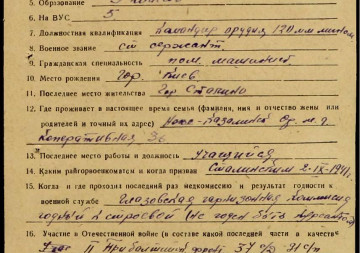 5. Образование
6. На ВУС 5
7. Должностная квалификация Командир орудия 120 мм мином
8. Военное звание ст сержант.
9. Гражданская специальность пом. машиниста
10. Место рождения Гор. Киев.
11. Последнее место жительства Гор Сталино
12. Где проживает в настоящее время семья (фамилия, имя и отчество жены или
родителей и точный их адрес)
Кооперативная 36
13. Последнее место работы и должность Учащийся
14. Каким райгорвоенкоматом и когда призван Сталинским 2-IX-1941г.
15. Когда и где проходил последний раз медкомиссию и результат годности к
военной службе Глазовская гарнизонная комиссия
годный к строевой (не годен быть курсантом)
16. Участие в Отечественной войне (в составе какой последней части, в качестве
II Прибалтийский фронт 37 с/д 91 с/п